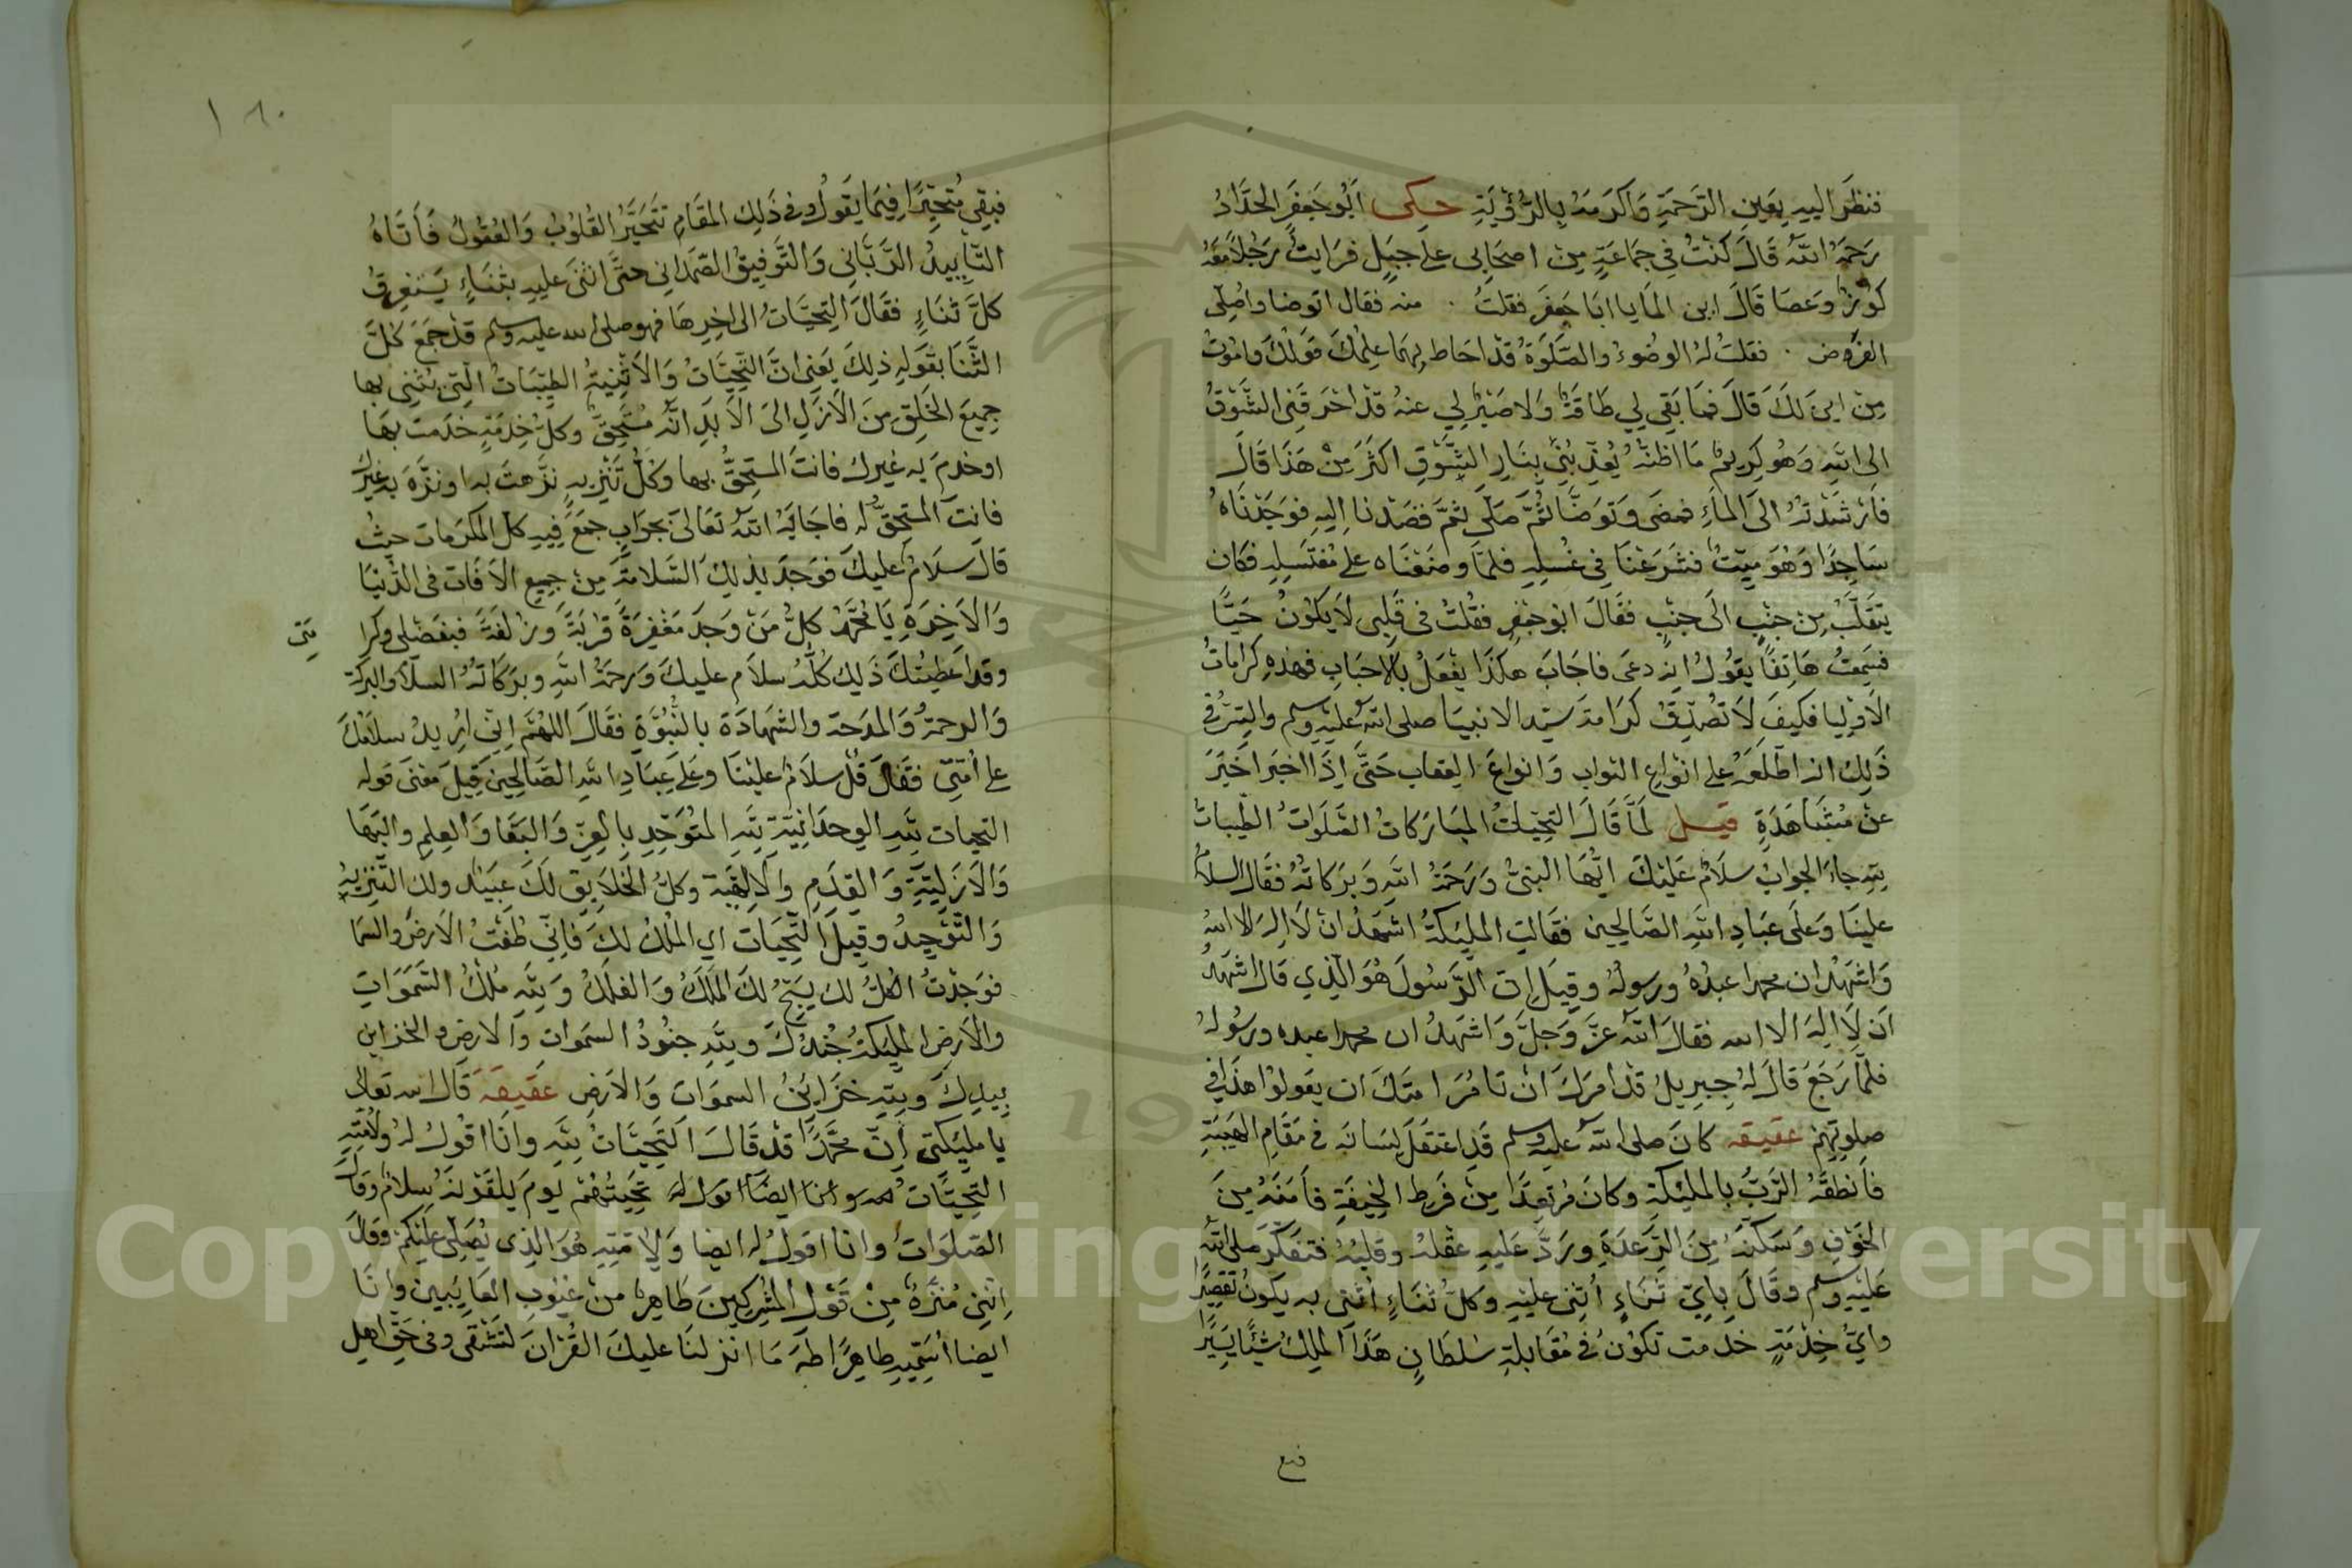 فنظر اليه بعين الرحمة واكرمه بالرؤية حكى ابو جعفر الحداد
رحمه الله قال كنت في جماعة من اصحابي على جبل فرايت رجلا معه
كوز وعصا قال اين الما يا ابا جعفر فقلت منه فقال اتوضا واصلي
الفروض فقلت له الوضوء والصلوة قد احاط بهما علمك
من اين لك قال فما بقي لي طاقة ولا صبر لي عنه قد احرقني الشوق
الى الله وهو كريم ما اظنه يعذبني بنار الشوق اكثر من هذا قال
فارشدته الى الماء فمضى وتوضا ثم صلى ثم قصدنا اليه فوجدناه
ساجدا وهو ميت فشرعنا في غسله فلما وضعناه على مغتسله فكان
يتقلب من جنب الى جنب فقال ابو جعفر فقلت في قلبي لا يكون حيا
فسمعت هاتفا يقول انه دعى فاجاب هكذا يفعل بالاحباب فهذه كرامات
الاوليا فكيف لا تصدق كرامة سيد الانبيا صلى الله عليه وسلم والسر في
ذلك انه اطلعه على انواع الثواب وانواع العقاب حتى اذا اخبر اخبر
عن مشاهدة قيل لما قال التحيات المباركات الصلوات الطيبات
لله جاء الجواب سلام عليك ايها النبي ورحمة الله وبركاته فقال السلام
علينا وعلى عباد الله الصالحين فقالت المليكة اشهد ان لا اله الا الله
واشهد ان محمدا عبده ورسوله وقيل ان الرسول هو الذي قال اشهد
ان لا اله الا الله فقال الله عز وجل واشهد ان محمدا عبده ورسوله
فلما رجع قال له جبريل قد امرك ان تامر امتك ان يقولوا هذا في
صلوتهم عقيقه كان صلى الله عليه وسلم قد اعتقل لسانه في مقام الهيبة
فانطقه الرب بالمليكة وكان مرتعدا من فرط الخيفة فامنه من
الخوف وسكنه من الرعدة ورد عليه عقله وقلبه فتفكر صلى الله
عليه وسلم وقال باي ثناء اثني عليه وكل ثناء اثني به يكون تقصيرا
واي خدمة خدمت تكون في مقابلة سلطان هذا الملك شيئا يسيرا
١٨٠
فبقي متحيرا فيما يقول وفي ذلك المقام تتحير القلوب والعقول فاتاه
التاييد الرباني والتوفيق الصمداني حتى اثنى عليه بثناء يستغرق
كل ثناء فقال التحيات الى اخرها فهو صلى الله عليه وسلم قد جمع كل
الثنا بقوله ذلك يعني ان التحيات والاثنية الطيبات التي يثني بها
جميع الخلق من الازل الى الابد انه مستحق وكل خدمة خدمت بها
او خدم به غيرك فانت المستحق بها وكل تنزيه نزهت به او نزه به غيرك
فانت المستحق له فاجابه الله تعالى بجواب جمع فيه كل المكرمات حيث
قال سلام عليك فوجد بذلك السلامة من جميع الافات في الدنيا
والاخرة يا محمد كل من وجد مغفرة قربة وزلفة فبفضلي وكرا متي
وقد اعطيتك ذلك كله سلام عليك ورحمة الله وبركاته السلام والبركة
والرحمة والمدحة والشهادة بالنبوة فقال اللهم اني اريد سلامك
على امتي فقال قل سلام علينا وعلى عباد الله الصالحين قيل معنى قوله
التحيات لله الوحدانية لله المتوحد بالعز والبقا والعلم والبها
والازلية والقدم والالهية وكل الخلايق لك عبيد ولك التنزيه
والتوحيد وقيل التحيات اي الملك لك فاني طفت الارض والسما
فوجدت الكل لك يسبح لك الملك والفلك ولله ملك السموات
والارض المليكة جندك ولله جنود السموات والارض والخزاين
بيدك ولله خزاين السموات والارض عقيقه قال الله تعالى
يا مليكتي ان محمدا قد قال التحيات لله وانا اقول له ولامته
التحيات لله وانا ايضا اقول له تحيتهم يوم يلقونه سلام وقال
الصلوات وانا اقول له ايضا ولامته هو الذي يصلي عليكم وقال
انني منزه من قول المشركين طاهر من عيوب العايبين وانا
ايضا اسميه طاهرا طه ما انزلنا عليك القران لتشقى وفي حق اهل
فبقي
Copyright © King Saud University
19